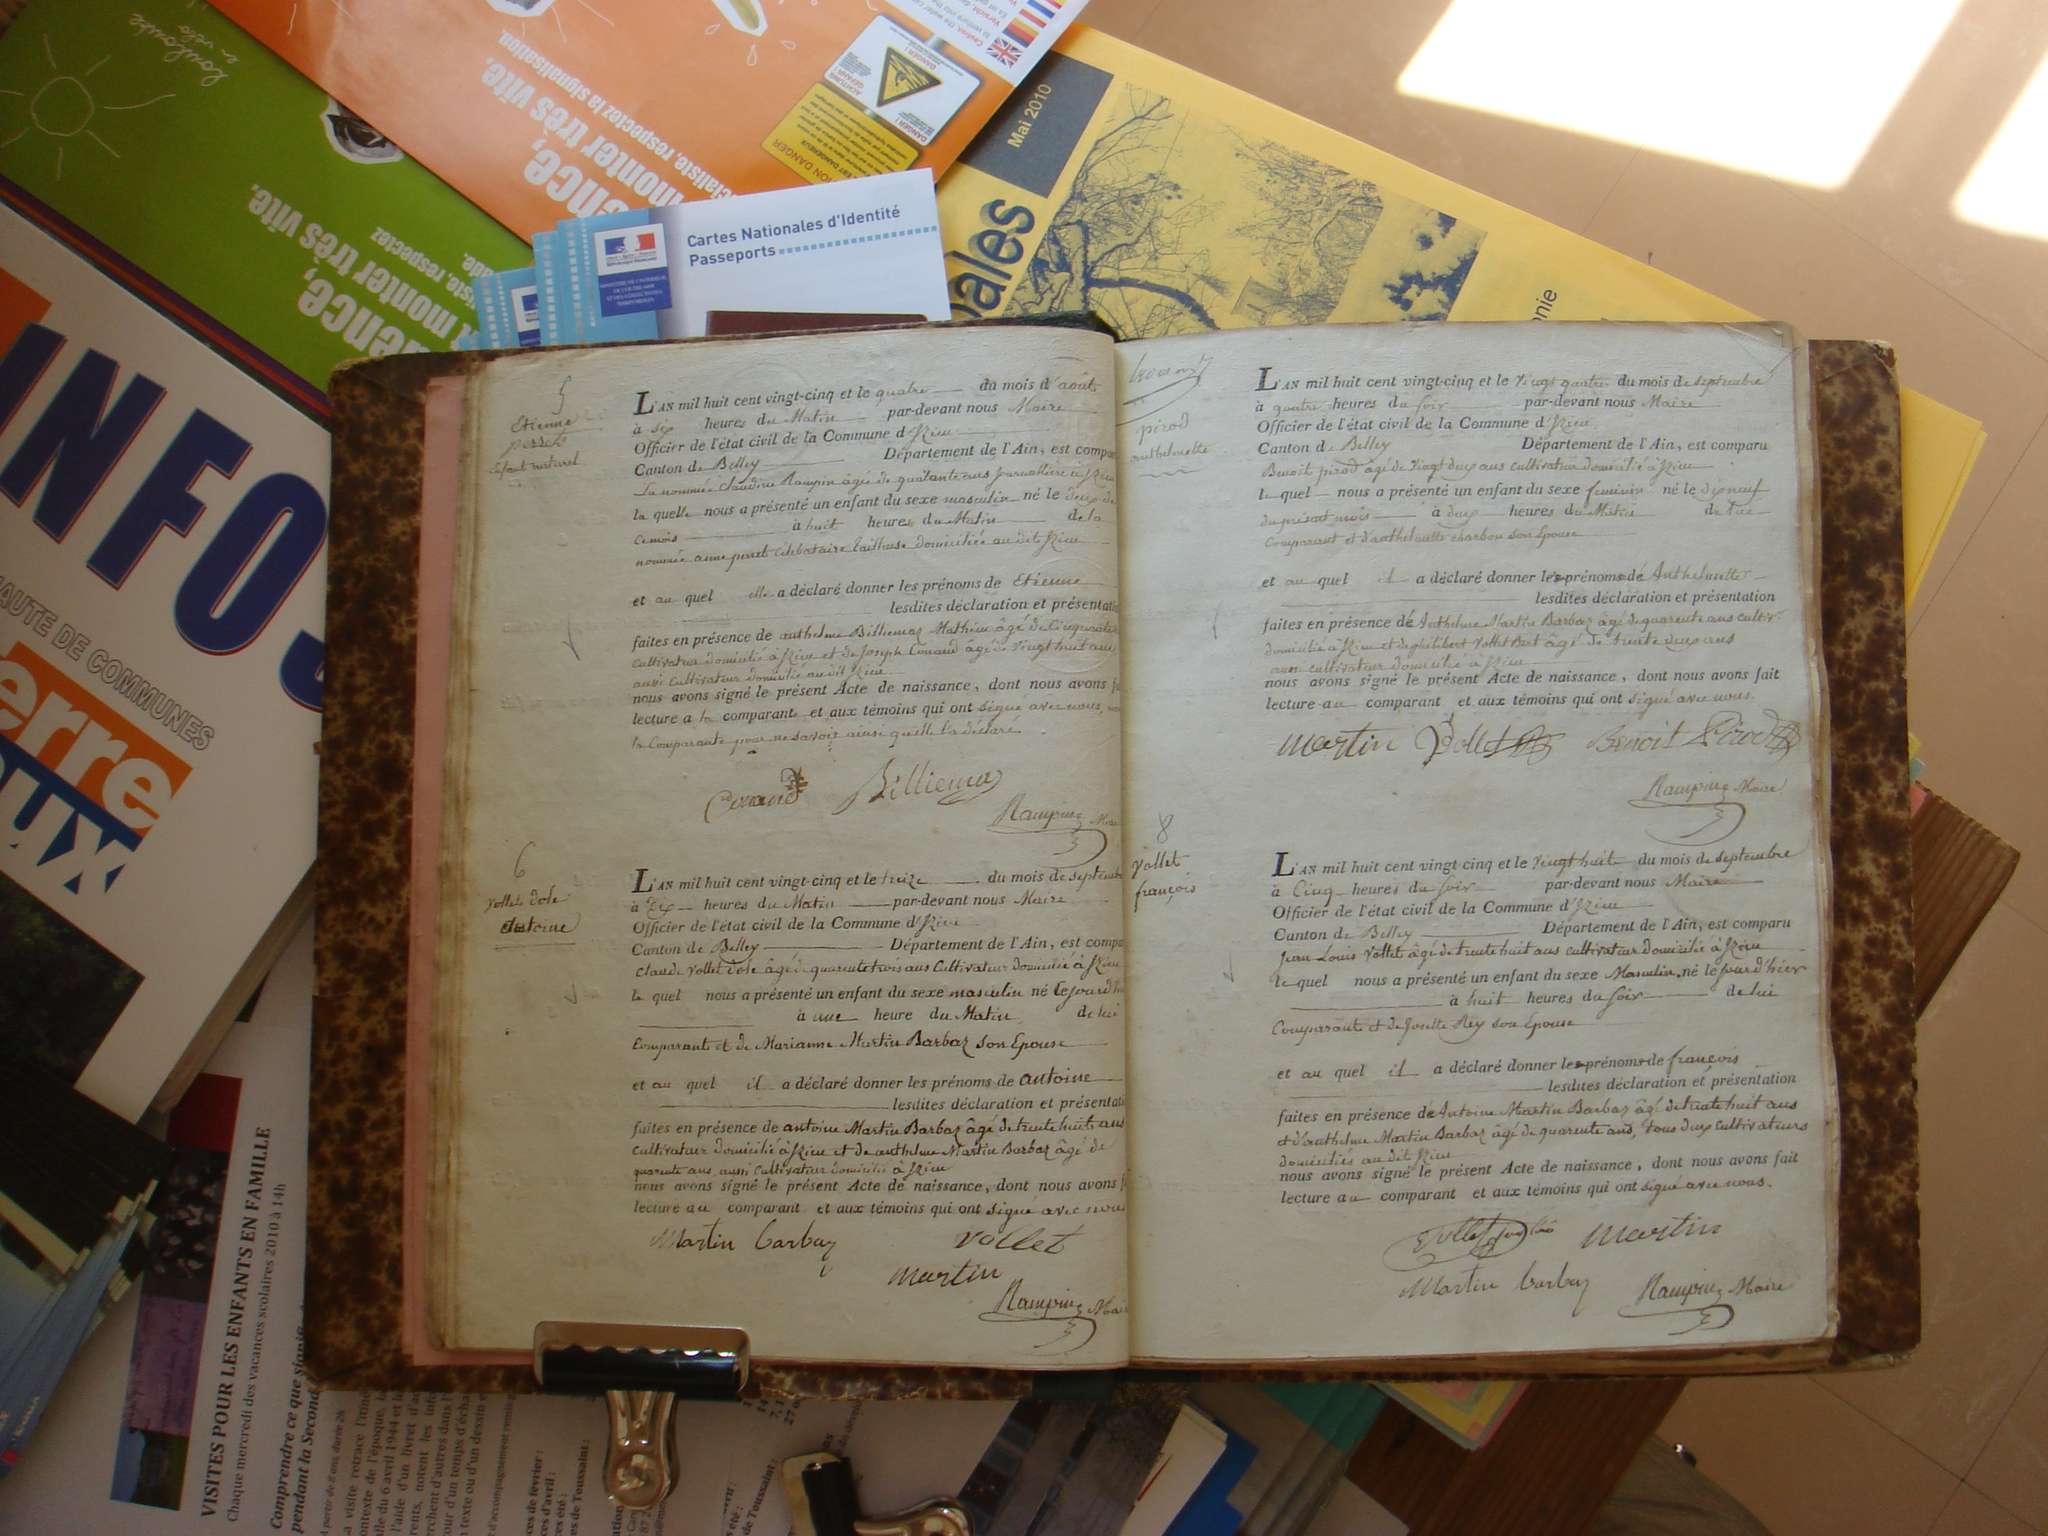 Toulouse
à vélo
ence,
monter très vite.
cialiste, respectez la signalisation.
ence,
monter très vite.
iste, respectez
DANGER !
ATTENTION DANGER
Mai 2010
pales
onie
Cartes Nationales d'Identité
Passeports
INFOS
AUTE DE COMMUNES
erre
eux
VISITES POUR LES ENFANTS EN FAMILLE
Chaque mercredi des vacances scolaires 2010 à 14h
Comprendre ce que signifie
pendant la Second
5
Etienne
perret
Enfant naturel
L'AN mil huit cent vingt-cinq et le quatre du mois d'août
à six heures du Matin par-devant nous Maire
Officier de l'état civil de la Commune d'Izieu
Canton de Belley Département de l'Ain, est compar
La nommée Claudine Rampin âgé de quarante ans Journallière à Izieu
la quelle nous a présenté un enfant du sexe masculin né le deux de
ce mois à huit heures du Matin de la
nommée anne perret célibataire tailleuse domiciliée au dit Izieu
et au quel elle a déclaré donner les prénoms de Etienne
lesdites déclaration et présentatio
faites en présence de anthelme Billiemaz Mathieu âgé de Cinquante
cultivateur domicilié à Izieu et de Joseph Conand âgé de vingt huit ans
aussi Cultivateur domicilié au dit Izieu
nous avons signé le présent Acte de naissance, dont nous avons f
lecture a la comparante et aux témoins qui ont signé avec nous, non
la Comparante pour ne savoir ainsi quelle l'a déclaré
Conand Billiemaz
Rampin Maire
6
Vollet dole
antoine
L'AN mil huit cent vingt-cinq et le treize du mois de septembre
à Dix heures du Matin par-devant nous Maire
Officier de l'état civil de la Commune d'Izieu
Canton de Belley Département de l'Ain, est compa
Claude Vollet dole âgé de quarente trois ans Cultivateur domicilié à Izieu
le quel nous a présenté un enfant du sexe masculin né Cejourd'h
à une heure du Matin de lui
Comparant et de Marianne Martin Barbaz son Epouse
et au quel il a déclaré donner les prénoms de antoine
lesdites déclaration et présentati
faites en présence de antoine Martin Barbaz âgé de trente huit ans
cultivateur domicilié à Izieu et de anthelme Martin Barbaz âgé de
quarente ans aussi Cultivateur domicilié à Izieu
nous avons signé le présent Acte de naissance, dont nous avons f
lecture au comparant et aux témoins qui ont signé avec nous
Martin barbaz Vollet
martin
Rampin Maire
7
pirod
anthelmette
L'AN mil huit cent vingt-cinq et le Vingt quatre du mois de septembre
à quatre heures du soir par-devant nous Maire
Officier de l'état civil de la Commune d'Izieu
Canton de Belley Département de l'Ain, est comparu
Benoit pirod âgé de Vingt deux ans cultivateur domicilié à Izieu
le quel nous a présenté un enfant du sexe feminin né le dixneuf
du présent mois à deux heures du Matin de lui
Comparant et d'anthelmette charbon son Epouse
et au quel il a déclaré donner les prénoms dé Anthelmette
lesdites déclaration et présentation
faites en présence dé Anthelme Martin Barbaz âgé de quarente ans cultivr
domicilié à Izieu et de philibert Vollet Bert âgé de trente deux ans
aussi cultivateur domicilié à Izieu
nous avons signé le présent Acte de naissance, dont nous avons fait
lecture au comparant et aux témoins qui ont signé avec nous.
martin Vollet Benoit Pirod
Rampin Maire
8
Vollet
françois
L'AN mil huit cent vingt-cinq et le Vingt huit du mois de septembre
à Cinq heures du soir par-devant nous Maire
Officier de l'état civil de la Commune d'Izieu
Canton de Belley Département de l'Ain, est comparu
Jean Louis Vollet âgé de trente huit ans cultivateur domicilié à Izieu
le quel nous a présenté un enfant du sexe Masculin né le jour d'hier
à huit heures du soir de lui
Comparant et de Josette Rey son Epouse
et au quel il a déclaré donner les prénoms de françois
lesdites déclaration et présentation
faites en présence de Antoine Martin Barbaz âgé de trente huit ans
et d'anthelme Martin Barbaz âgé de quarente ans, tous deux cultivateurs
domiciliés au dit Izieu
nous avons signé le présent Acte de naissance, dont nous avons fait
lecture au comparant et aux témoins qui ont signé avec nous.
Vollet martin
Martin barbaz Rampin Maire